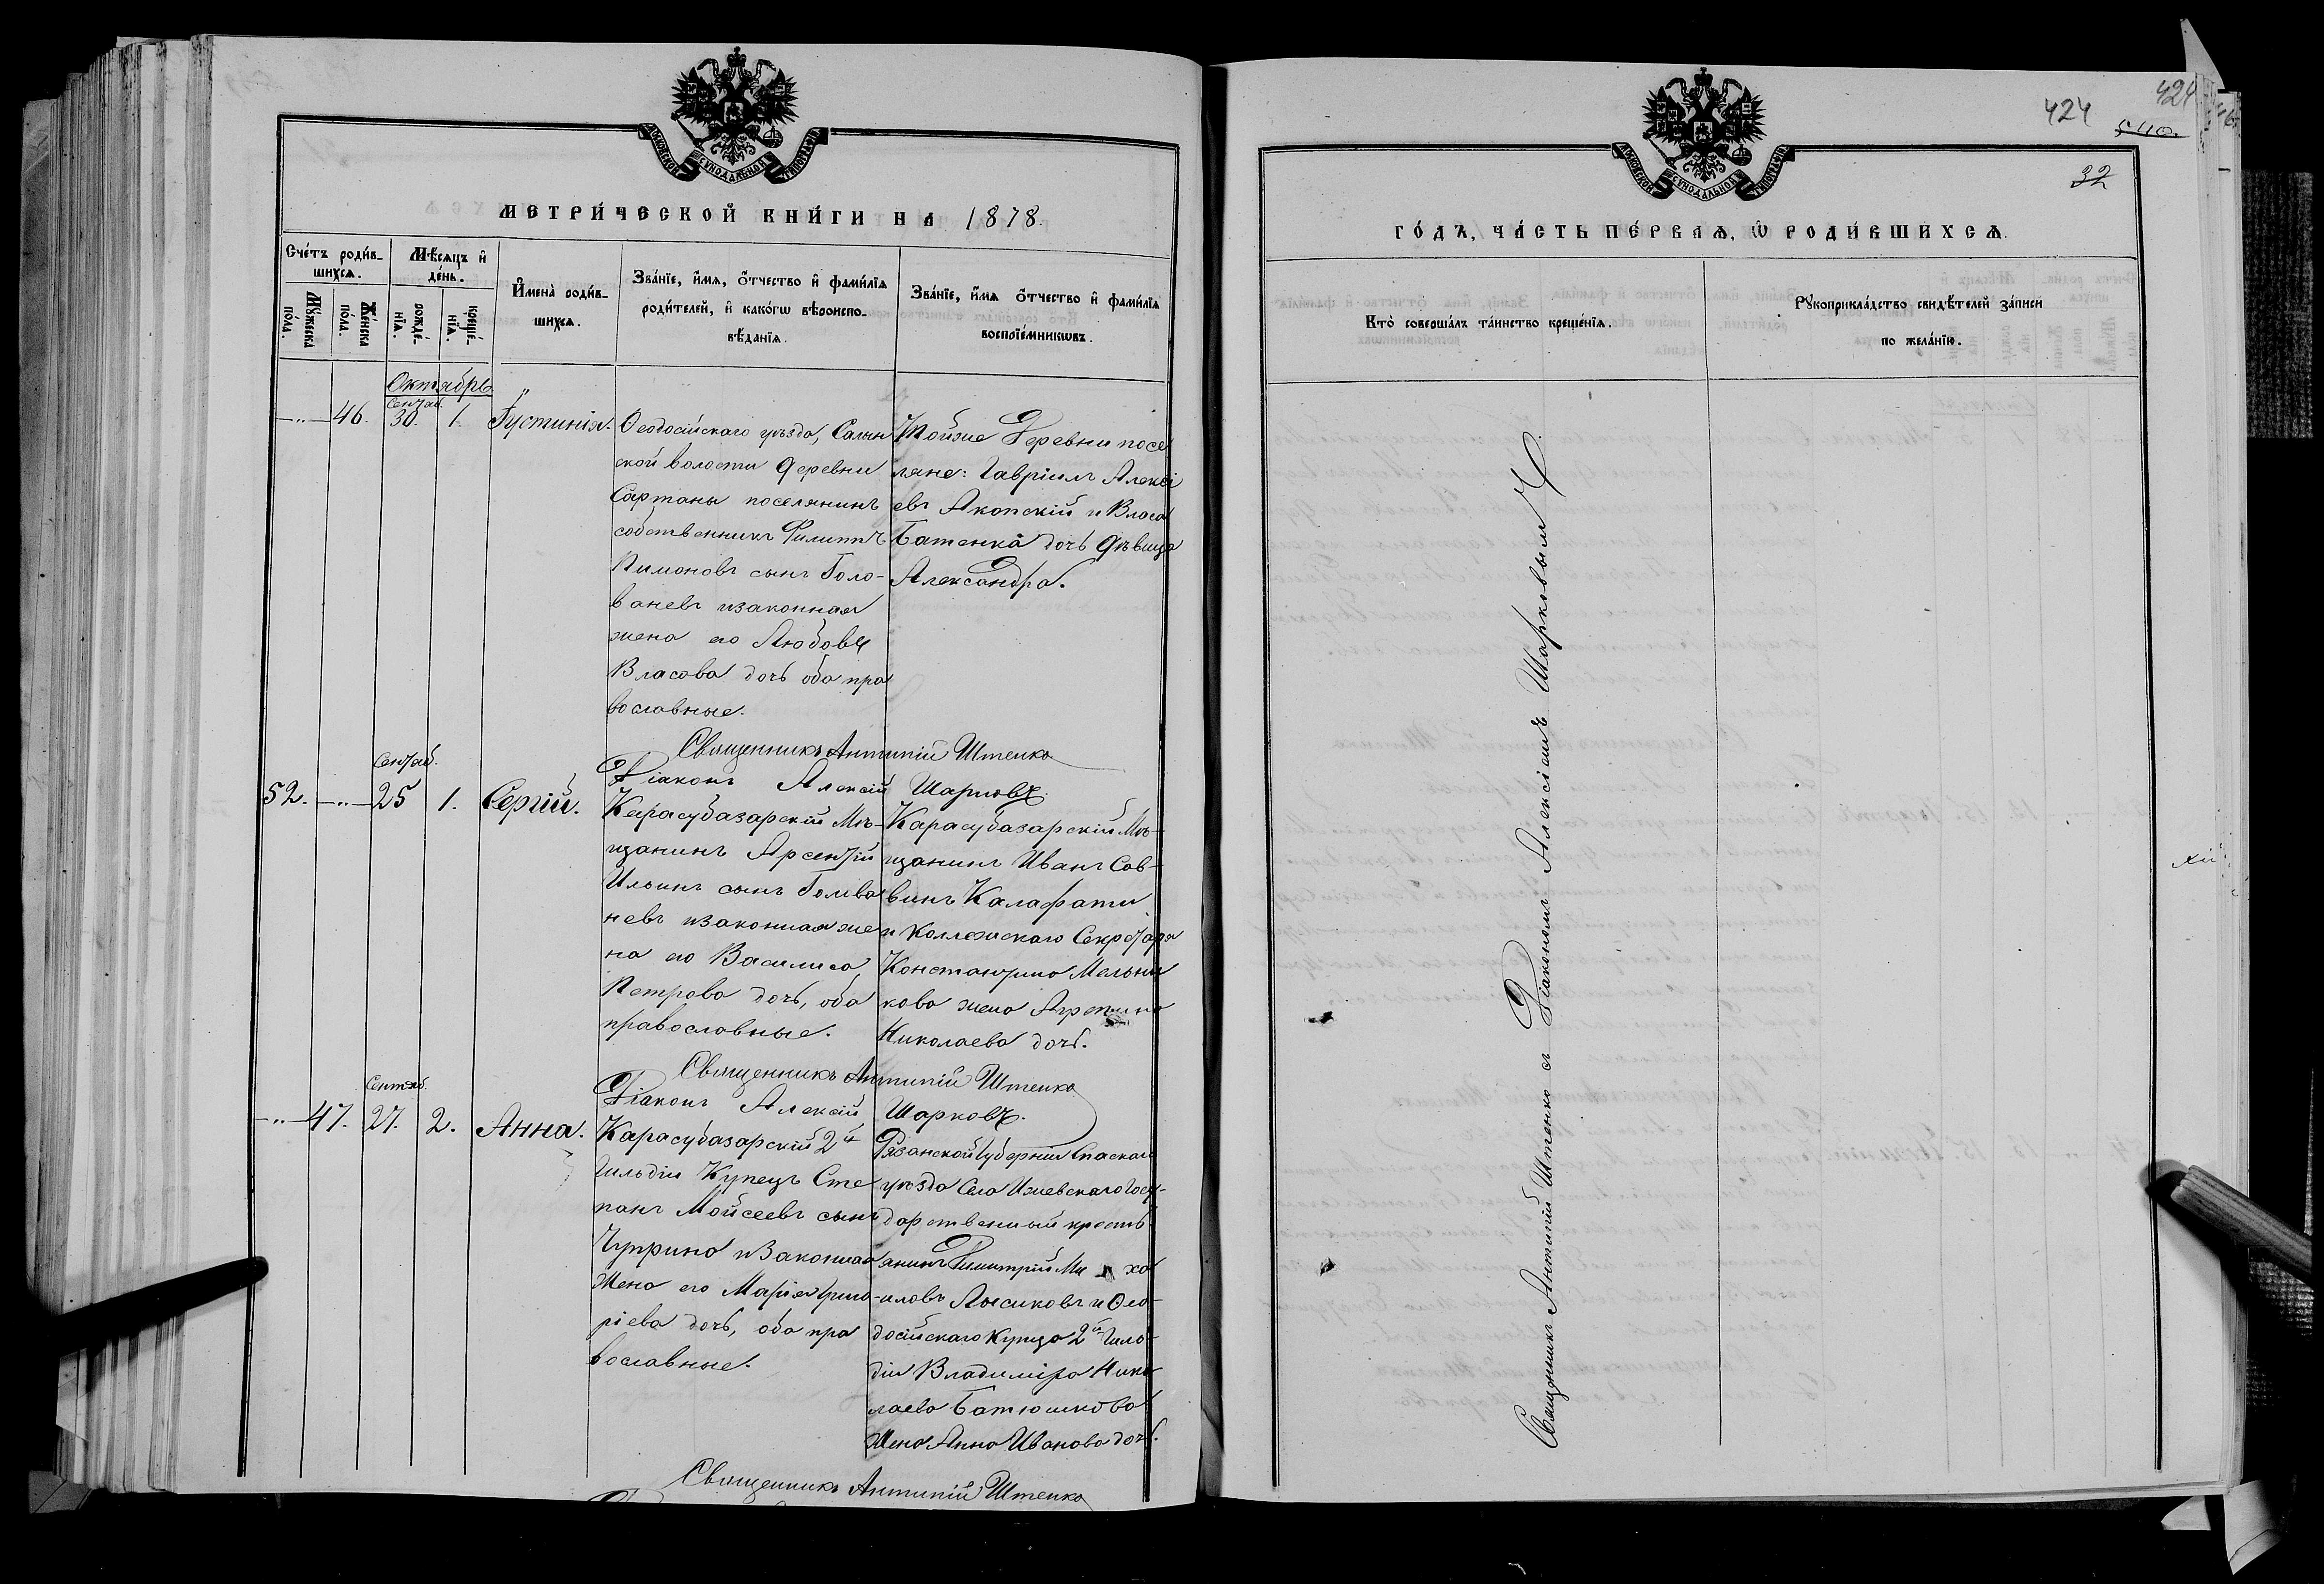 МОСКОВСКОЙ СѴНОДАЛЬНОЙ ТИПОГРАФІИ
МЕТРИ́ЧЕСКОЙ КНИ́ГИ НА 1878.
Сче́тъ роди́в-
шихсѧ.
Мѣ́сѧцъ и҆
де́нь.
Мꙋ́жеска
по́ла.
Же́нска
по́ла.
рожде́-
нїѧ.
креще́-
нїѧ.
И҆мена̀ роди́в-
шихсѧ.
Зва́нїе, и҆́мѧ, ѻ҆́тчество и҆ фами́лїѧ
роди́телей, и҆ како́гѡ вѣроиспо-
вѣ́данїѧ.
Зва́нїе, и҆́мѧ ѻ҆́тчество и҆ фами́лїѧ
воспрїе́мникѡвъ.
Октябрь
Сентяб.
—"— 46. 30. 1. Іустинія.
Ѳеодосійскаго уѣзда, Салын
ской волости деревни
Сартаны поселянинъ
собственникъ Филиппъ
Пимоновъ сынъ Голо-
ваневъ изаконная
жена его Любовь
Власова дочь оба пра
вославные.
Тойже Деревни посе
ляне: Гавріилъ Алексі
евъ Акопскій и Власа
Батенка дочь дѣвица
Александра.
Священникъ Антипій Штенко
Діаконъ Алексій Шарковъ.
Сентяб.
52. —"— 25 1. Сергій.
Карасубазарскій Мѣ-
щанинъ Арсентій
Ильинъ сынъ Голова
невъ изаконная же
на его Василиса
Петрова дочь, оба
православные.
Карасубазарскій Мѣ-
щанинъ Иванъ Сав-
винъ Калафати
и Коллежскаго Секретаря
Константина Мельни
кова жена Агрепина
Николаева дочь.
Священникъ Антипій Штенко
Діаконъ Алексій Шарковъ.
Сентяб.
—"— 47. 27. 2. Анна.
Карасубазарскій 2й
Гильдіи Купецъ Сте
панъ Мойсеевъ сынъ
Чуприна изаконная
жена его Марія Григо-
ріева дочь, оба пра
вославные.
Рязанской Губерніи Спаскаго
уѣзда Села Ижевскаго Госу-
дарственный кресть-
янинъ Димитрій Ми ха
иловъ Лысиковъ и Ѳео-
досійскаго Купца 2й Гиль-
діи Владиміра Нико
лаева Батюшкова
жена Анна Иванова дочь.
Священникъ Антипій Штенко
МОСКОВСКОЙ СѴНОДАЛЬНОЙ ТИПОГРАФІИ
424
424
540.
32
ГО́ДЪ, ЧА́СТЬ ПЕ́РВАѦ, Ѡ҆ РОДИ́ВШИХСѦ.
Кто̀ соверша́лъ та́инство креще́нїѧ.
Рꙋкоприкла́дство свидѣ́телей за́писи
по жела́нїю.
Священникъ Антипій Штенко съ Діакономъ Алексіемъ Шарковымъ